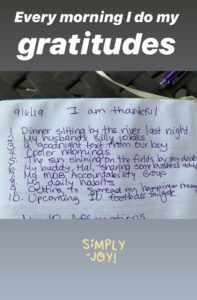 Every morning I do my
gratitudes
9/6/19 I am thankful
1. Dinner sitting by the river last night
2. My husband's silly jokes
3. A goodnight text from our boy
4. Cooler mornings
5. The sun shining on the fields by my deck
6. My buddy, Hal, sharing some business advice
7. My mBS Accountability Group
8. My daily habits
9. Getting to spread my happiness message
10. Upcoming IU football tailgate
10 Affirmations
SiMPLY
JOY!